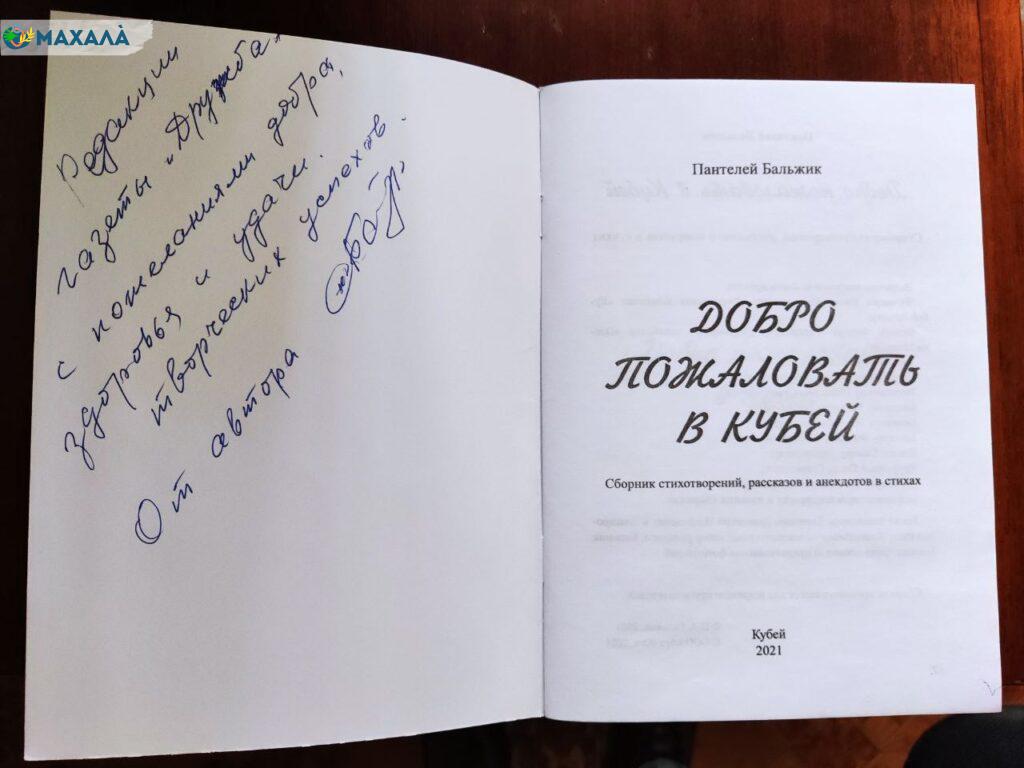 МАХАЛÀ
Редакции
газеты „Дружба"
с пожеланиями добра,
здоровья и удачи.
творческих успехов.
От автора
Пантелей Бальжик
ДОБРО
ПОЖАЛОВАТЬ
В КУБЕЙ
Сборник стихотворений, рассказов и анекдотов в стихах
Кубей
2021